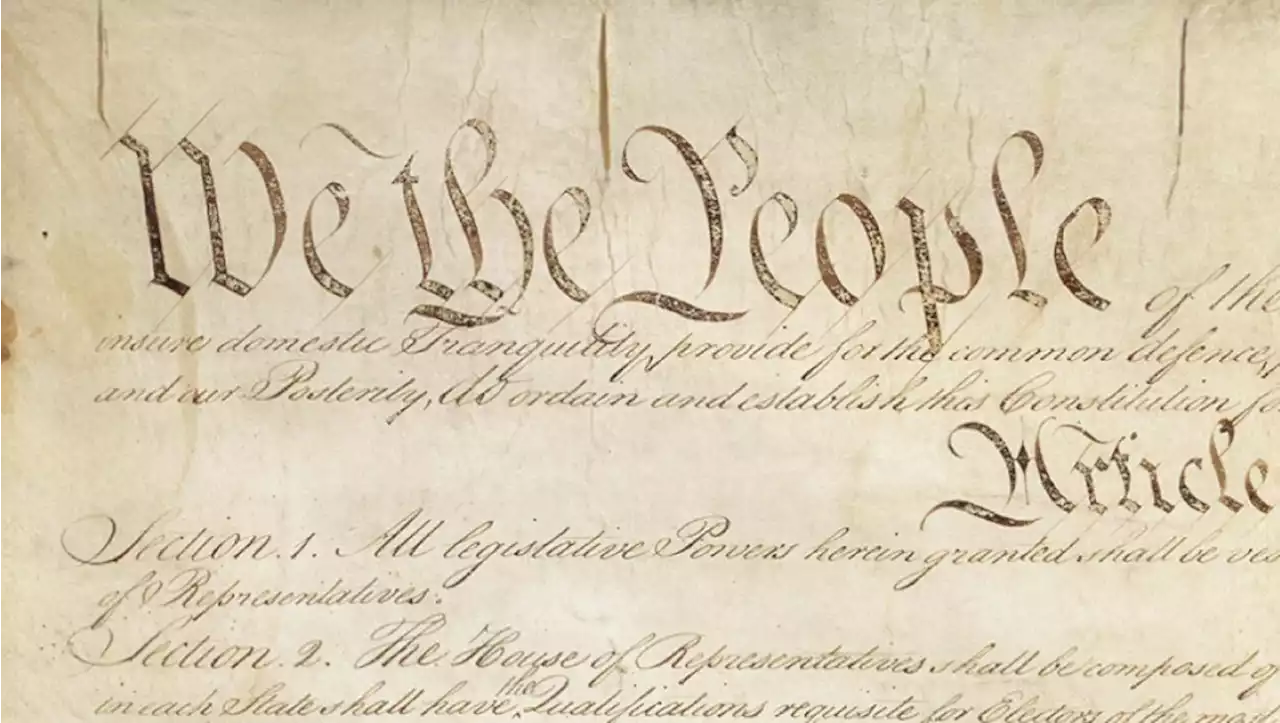 We the People of the
insure domestic Tranquility, provide for the common defence,
and our Posterity, do ordain and establish this Constitution
Article
Section. 1. All legislative Powers herein granted shall be
of Representatives.
Section. 2. The House of Representatives shall be composed
the
in each State shall have Qualifications requisite for Electors of the